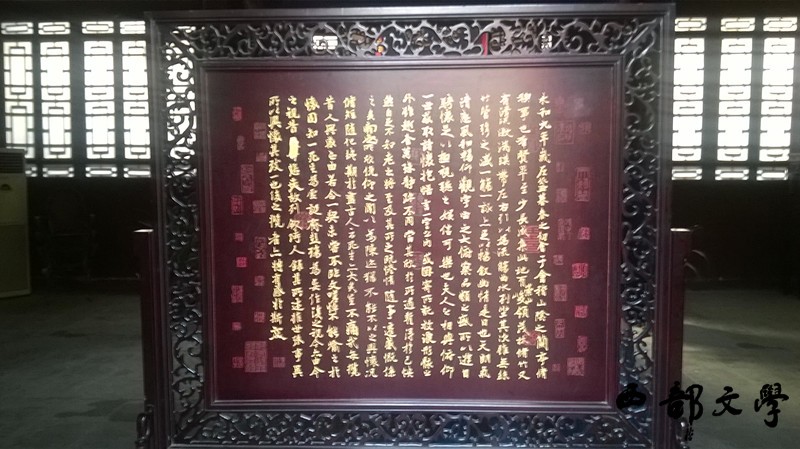 永和九年歲在癸丑暮春之初會于會稽山陰之蘭亭脩
禊事也群賢畢至少長咸集此地有崇山峻領茂林脩竹又
有清流激湍暎帶左右引以為流觴曲水列坐其次雖無絲
竹管弦之盛一觴一詠亦足以暢敘幽情是日也天朗氣
清惠風和暢仰觀宇宙之大俯察品類之盛所以遊目
騁懷足以極視聽之娛信可樂也夫人之相與俯仰
一世或取諸懷抱悟言一室之內或因寄所託放浪形骸之
外雖趣舍萬殊靜躁不同當其欣於所遇蹔得於己怏
然自足不知老之將至及其所之既惓情隨事遷感慨係
之矣向之所欣俛仰之閒以為陳迹猶不能不以之興懷況
脩短隨化終期於盡古人云死生亦大矣豈不痛哉每攬
昔人興感之由若合一契未嘗不臨文嗟悼不能喻之於
懷固知一死生為虛誕齊彭殤為妄作後之視今亦由今
之視昔悲夫故列敘時人錄其所述雖世殊事異
所以興懷其致一也後之攬者亦將有感於斯文
西部文學